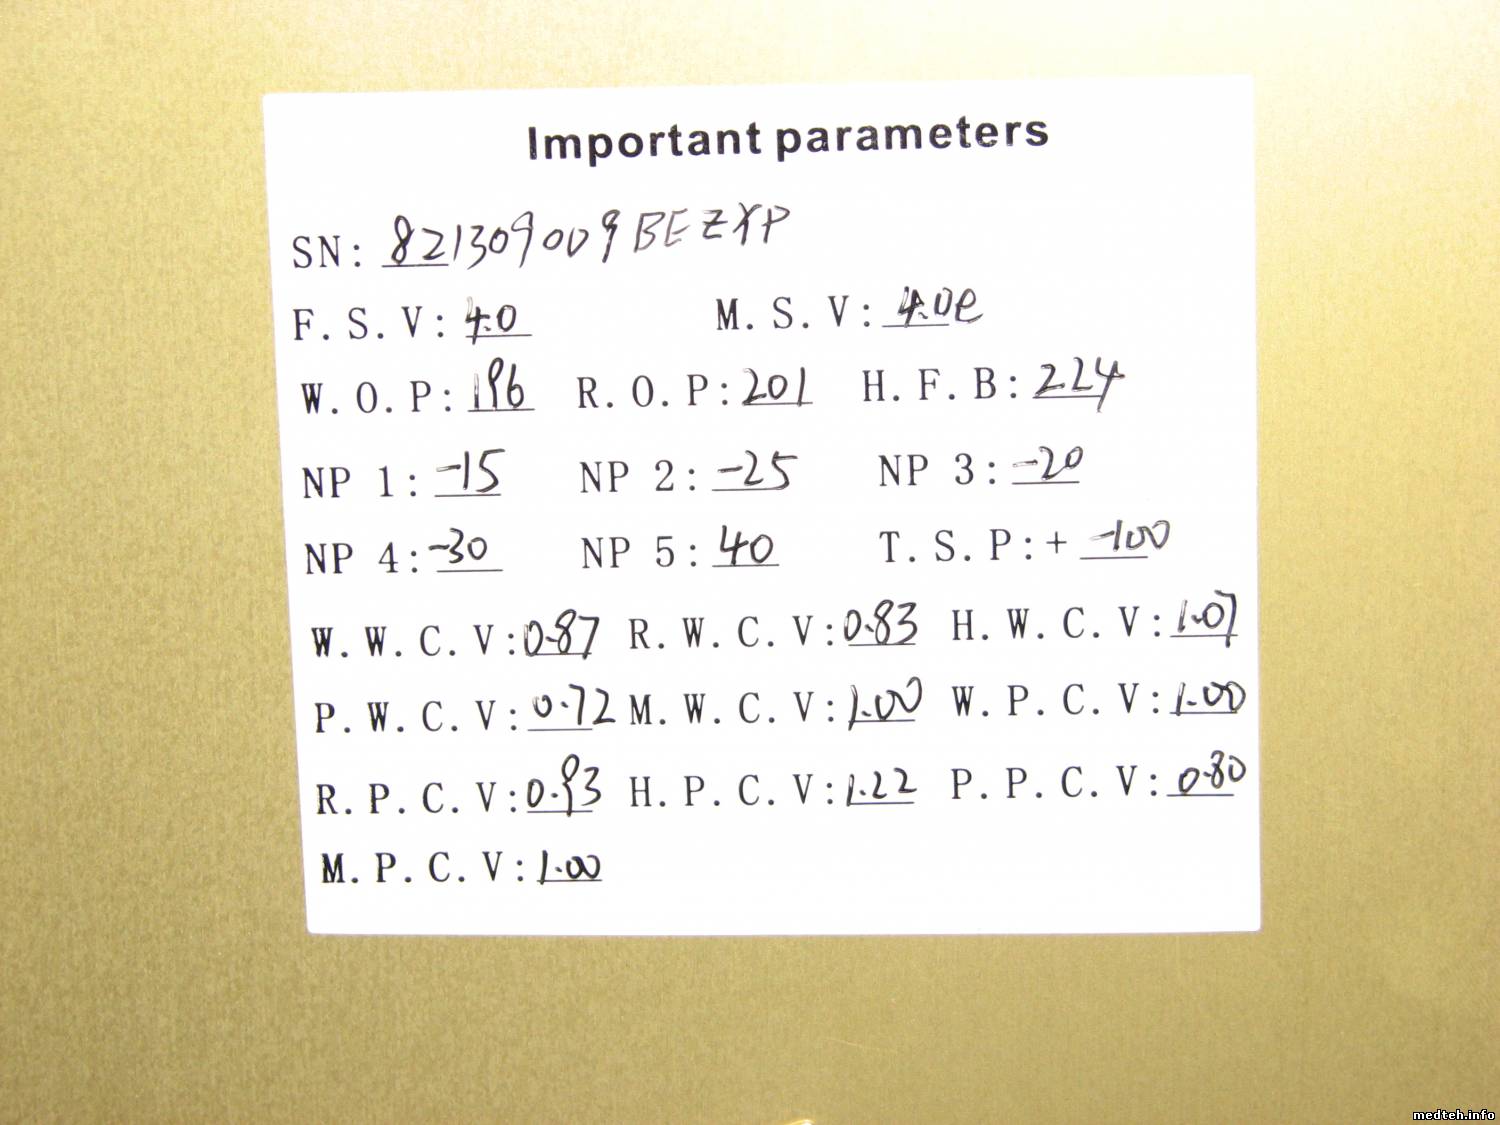 Important parameters
SN: 821309009BEZXP
F.S.V: 4.0 M.S.V: 4.0e
W.O.P: 196 R.O.P: 201 H.F.B: 224
NP 1: -15 NP 2: -25 NP 3: -20
NP 4: -30 NP 5: 40 T.S.P: + -100
W.W.C.V: 0.87 R.W.C.V: 0.83 H.W.C.V: 1.07
P.W.C.V: 0.72 M.W.C.V: 1.00 W.P.C.V: 1.00
R.P.C.V: 0.93 H.P.C.V: 1.22 P.P.C.V: 0.80
M.P.C.V: 1.00
medteh.info